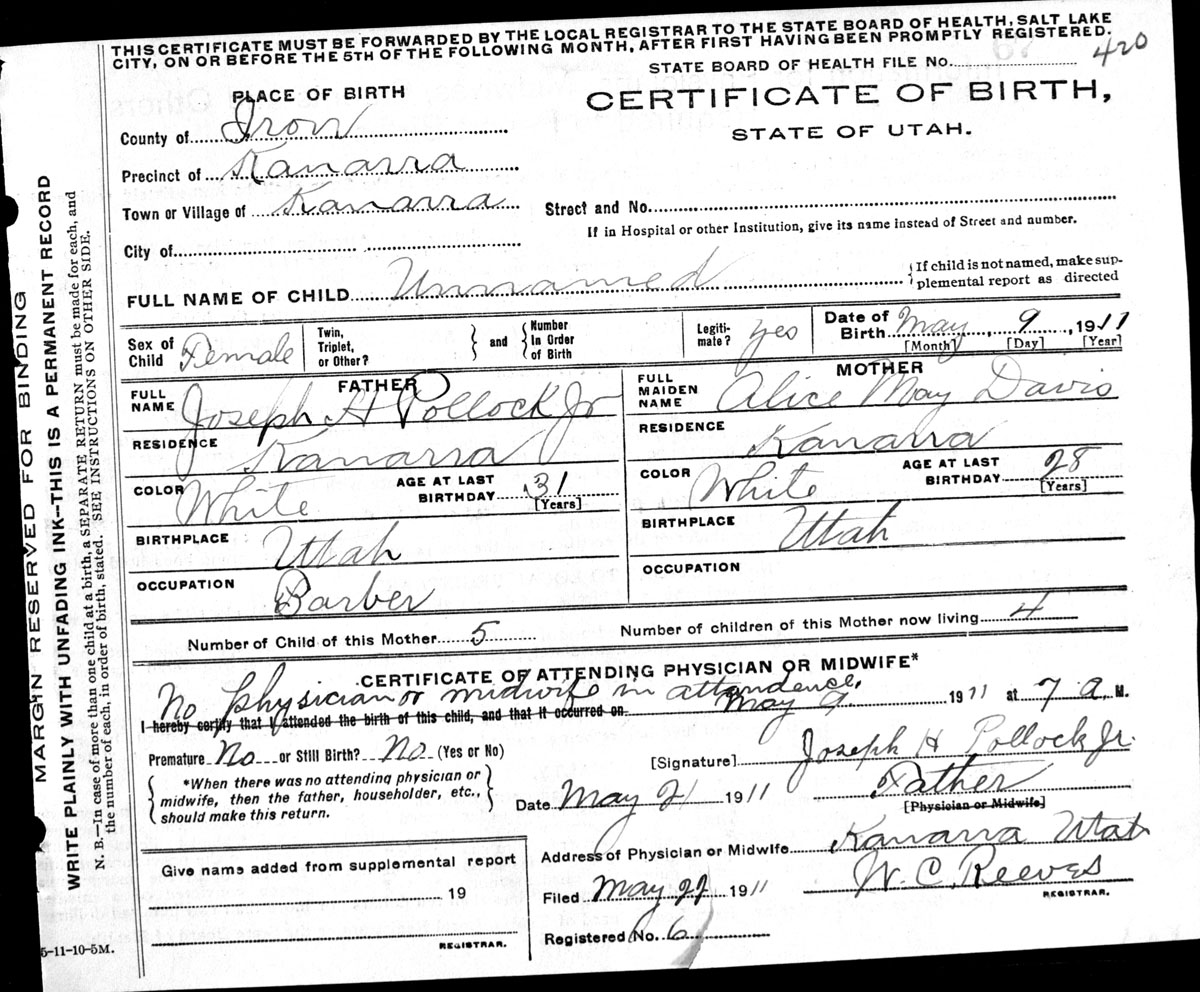 THIS CERTIFICATE MUST BE FORWARDED BY THE LOCAL REGISTRAR TO THE STATE BOARD OF HEALTH, SALT LAKE
CITY, ON OR BEFORE THE 5TH OF THE FOLLOWING MONTH, AFTER FIRST HAVING BEEN PROMPTLY REGISTERED.
STATE BOARD OF HEALTH FILE No. 420
PLACE OF BIRTH
CERTIFICATE OF BIRTH,
STATE OF UTAH.
County of Iron
Precinct of Kanarra
Town or Village of Kanarra
Street and No.
If in Hospital or other Institution, give its name instead of Street and number.
City of
FULL NAME OF CHILD Unnamed
{If child is not named, make sup-
plemental report as directed
Sex of Child Female
Twin, Triplet, or Other?
} and { Number In Order of Birth
Legiti-mate? yes
Date of Birth May, 9, 1911
[Month] [Day] [Year]
FATHER
FULL NAME Joseph H Pollock Jr
MOTHER
FULL MAIDEN NAME Alice May Davis
RESIDENCE Kanarra
RESIDENCE Kanarra
COLOR White AGE AT LAST BIRTHDAY 31 [Years]
COLOR White AGE AT LAST BIRTHDAY 28 [Years]
BIRTHPLACE Utah
BIRTHPLACE Utah
OCCUPATION Barber
OCCUPATION
Number of Child of this Mother 5 Number of children of this Mother now living 4
CERTIFICATE OF ATTENDING PHYSICIAN OR MIDWIFE*
No physician or midwife in attendence.
I hereby certify that I attended the birth of this child, and that it occurred on May 9 1911 at 7 a. M.
Premature No or Still Birth? No (Yes or No)
[Signature] Joseph H Pollock Jr.
{ *When there was no attending physician or
midwife, then the father, householder, etc.,
should make this return. }
Date May 21 1911 Father
[Physician or Midwife]
Address of Physician or Midwife Kanarra Utah
Give name added from supplemental report
19
REGISTRAR.
Filed May 22 1911 W. C. Reeves
REGISTRAR.
Registered No. 6
5-11-10-5M.
MARGIN RESERVED FOR BINDING
WRITE PLAINLY WITH UNFADING INK--THIS IS A PERMANENT RECORD
N. B.--In case of more than one child at a birth, a SEPARATE RETURN must be made for each, and
the number of each, in order of birth, stated. SEE INSTRUCTIONS ON OTHER SIDE.